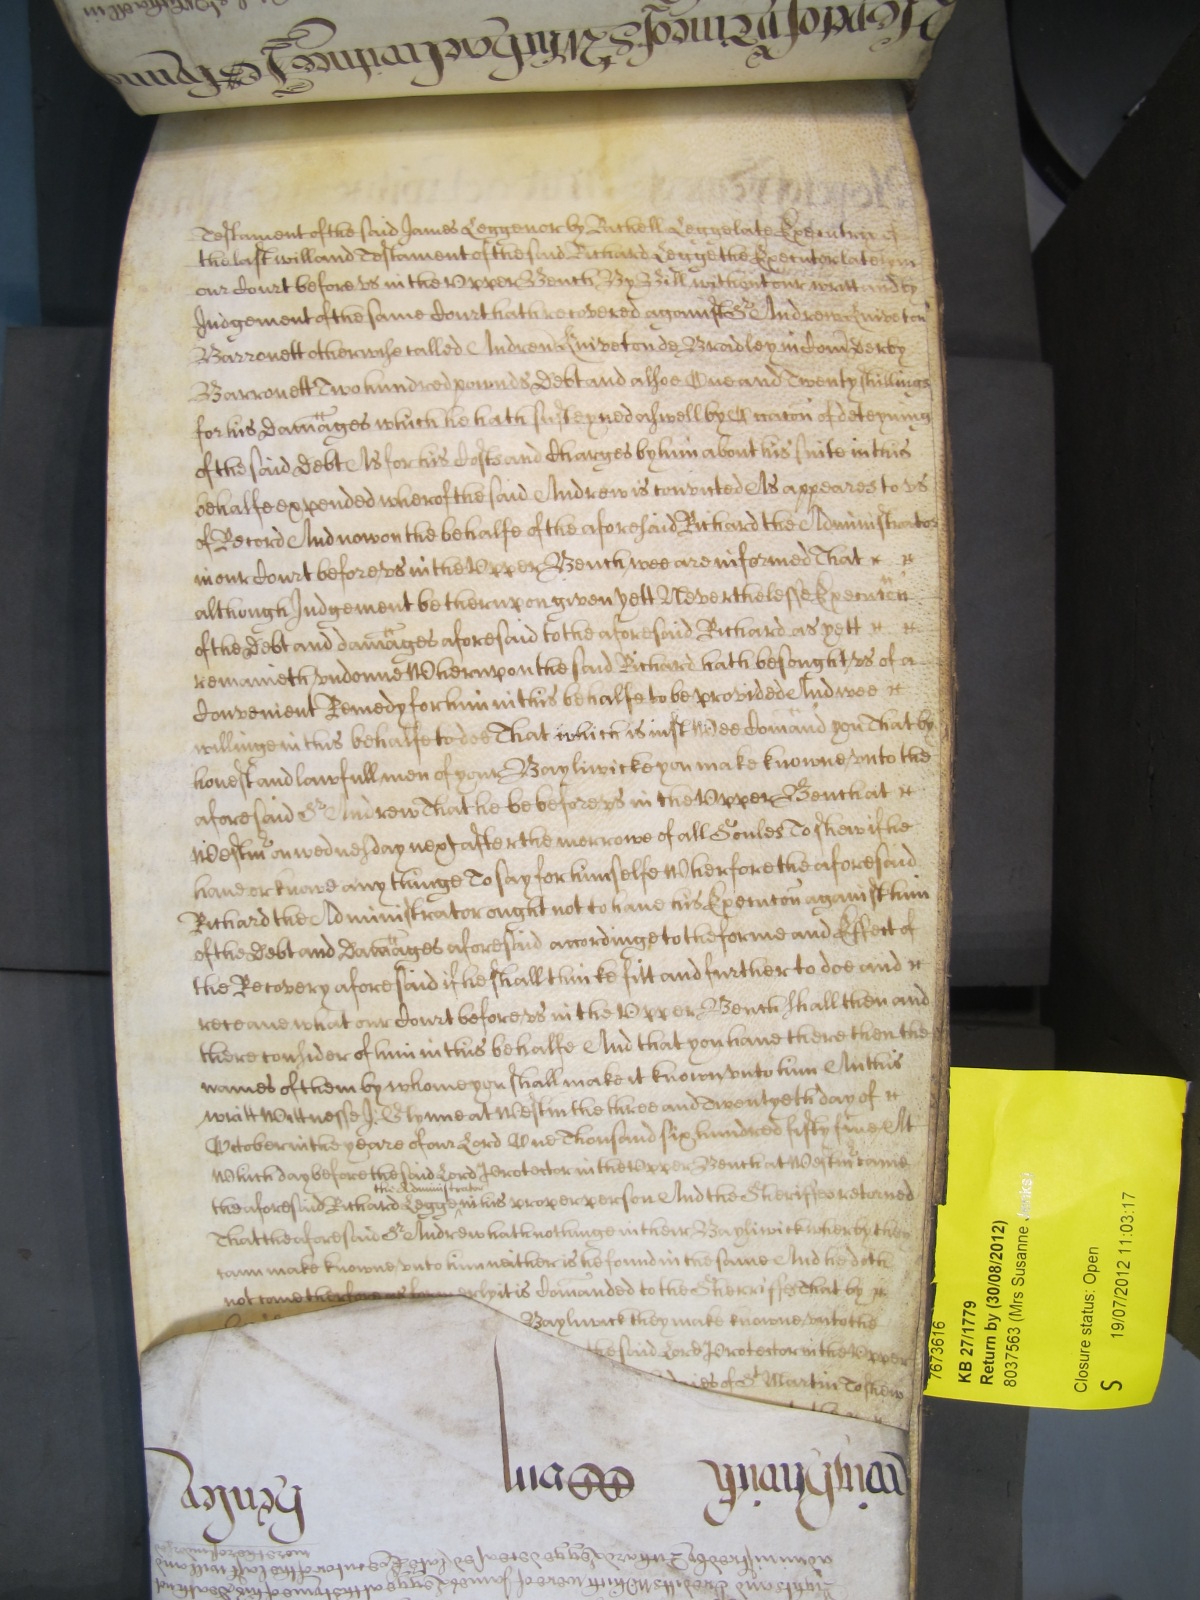 Testament of the said James Legge nor by Richell Legge late Executrix of
the last will and Testament of the said Richard Legge the Executor lately in
our Court before vs in the Vpper Bench By Bill without our writt and by
Judgement of the same Court hath recovered against Sr Andrew Kniveton
Barronett otherwise called Andrew Kniveton de Bradley in Com Derby
Barronett Two hundred pownds Debt and alsoe One and Twenty shillings
for his Damages which he hath susteyned aswell by of deteyning
of the said Debt As for his Costs and Charges by him about his suite in this
behalfe expended wherof the said Andrew is convicted As appeares to vs
of Record And now on the behalfe of the aforesaid Richard the Administrator
in our Court before vs in the Vpper Bench wee are informed That
although Judgement be therupon given yett Neverthelesse Execucon
of the Debt and damages aforesaid to the aforesaid Richard as yett
remaineth vndonne Wherupon the said Richard hath besought vs of a
Convenient Remedy for him in this behalfe to be provided And wee
willinge in this behalfe to doe That which is iust Wee Comand you That by
honest and lawfull men of your Bayliwicke you make knowne vnto the
aforesaid Sr Andrew That he be before vs in the Vpper Bench at
Westmr on wednesday next after the morrowe of all Soules To shew if he
haue or knowe any thinge To say for himselfe Wherfore the aforesaid
Richard the Administrator ought not to haue his Execucon against him
of the Debt and Damages aforesaid accordinge to the forme and Effect of
the Recovery aforesaid if he shall thinke fitt and further to doe and
receaue what our Court before vs in the Vpper Bench shall then and
there consider of him in this behalfe And that you haue there then the
names of them by whome you shall make it known vnto him And this
writt Wittnesse J: Glynne at Westm the three and Twentyeth day of
October in the yeare of our Lord One Thousand six hundred fifty fiue At
Which day before the said Lord Protector in the Vpper Bench at Westmr came
the Administrator
the aforesaid Richard Legge in his proper person And the Sheriffes returned
That the aforesaid Sr Andrew hath nothinge in their Bayliwick wherby they
cann make knowne vnto him neither is he found in the same And he doth
not come therfore as formerly it is Comanded to the Sherriffes That by
Bayliwick they make knowne vnto the
the said Lord Protector in the Vpper
of St Martin To shew
7673616
KB 27/1779
Return by (30/08/2012)
8037563 (Mrs Susanne Jenks)
Closure status: Open
S 19/07/2012 11:03:17
Henley